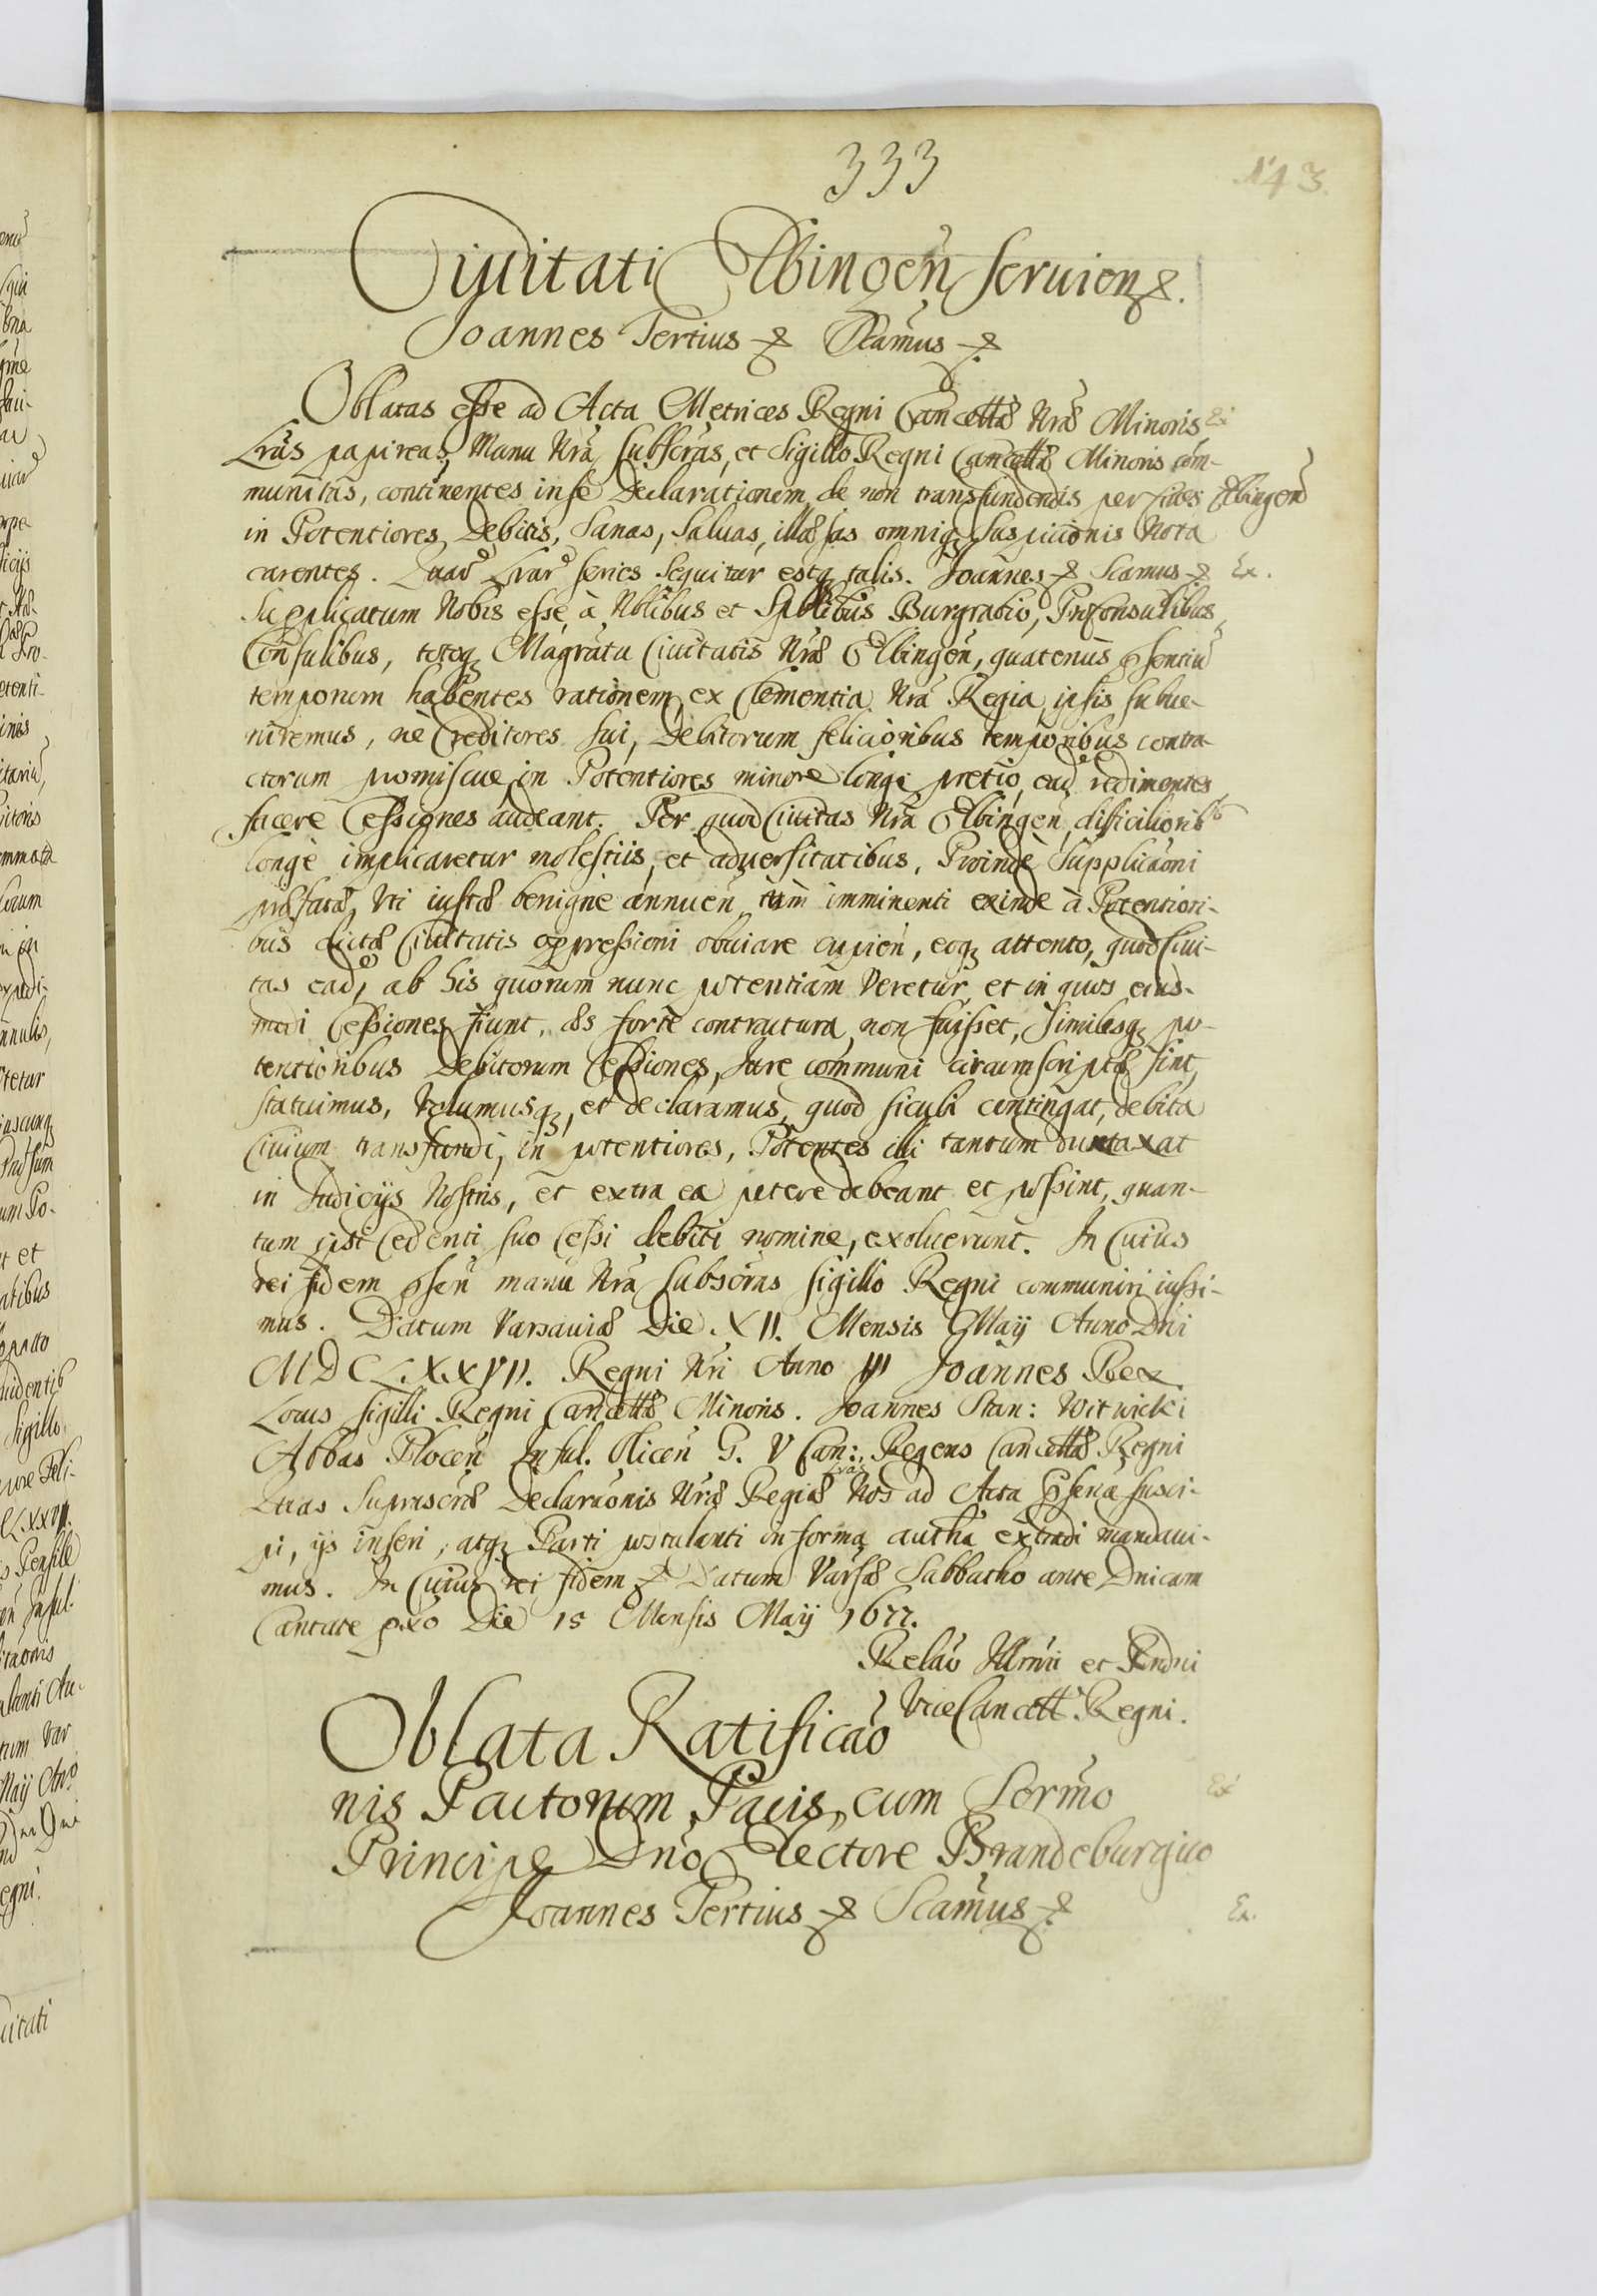 333
143.
Civitati Elbingen̄ seruien̄ &.
Joannes Tertius & Scamus &
Oblatas esse ad Acta Metrices Regni Cancellæ Nræ Minoris
Lrãs papireas, Manu Nrã subscras, et Sigillo Regni Cancellæ Minoris com-
munitas, continentes in se Declarationem de non transfundendis per Ciues Elbingen̄
in Potentiores Debitis, Sanas, Saluas, illæsas omniq; suspicionis Nota
carentes. Quar̄ Lrar̄ series sequitur estq; talis. Joannes & Scamus & Ex.
Supplicatum Nobis esse, à Nobilibus et Spblibus Burgrabio, Præconsulibus,
Consulibus, totoq; Magratu Ciuitatis Nræ Elbingen̄, quatenus pñsentiū
temporum habentes rationem, ex Clementia Nrã Regia, ipsis subue-
niremus, nè Creditores sui, Debitorum felicioribus temporibus contra-
ctorum promiscue in Potentiores minore longè pretio, eadē redimentes
facere Cessiones audeant. Per quod Ciuitas Nrã Elbingen̄, difficiliorib9
longè implicaretur molestiis, et aduersitatibus, Proindè Supplicaoni
præfatæ, Vti iustæ benignè annuen̄ tùm imminenti exindè à Potentiori-
bus dictæ Ciuitatis oppressioni obuiare cupien̄, eoq; attento, quod Ciui-
tas eadē, ab his quorum nunc potentiam Veretur, et in quos eius-
modi Cessiones fiunt, æs fortè contractura non fuisset, similesq; po-
tentioribus Debitorum Cessiones, Jure communi circumscriptæ sint,
statuimus, Volumusq; et declaramus, quod sicubi contingat, debita
Ciuium transfundi, in potentiores, Potentes illi tantum duntaxat
in Judicijs Nostris, et extra ea petere debeant et possint, quan-
tum ipsi Cedenti suo Cessi debiti nomine, exoluerunt. In Cuius
rei fidem pñsen̄ manu Nrã subscras sigillo Regni communiri iussi-
mus. Datum Varsauiæ Die XII. Mensis Maij Anno Dñi
MDCLXXVII. Regni Nri Anno III Joannes Rex.
Locus sigilli Regni Cancellæ Minoris. Joannes Stan: Witwicki
Abbas Plocen̄ Insul. Olicen̄ G. V Can: Regens Cancellæ Regni
Quas Suprascras Lrãs Declaraonis Nræ Regiæ Nos ad Acta pñsena susci-
pi, ijs inseri, atq; Parti postulanti in forma autha extradi mandaui-
mus. In Cuius rei fidem & Datum Varsæ Sabbatho ante Dnicam
Cantate pxo Die 15 Mensis Maij 1677.
Relaō Illrm̄i et Rndni
ViceCancell. Regni.
Oblata Ratificaō
nis Pactorum Pacis, cum Sermō
Principe Dnō Electore Brandeburgico
Joannes Tertius & Scamus &
Ex.